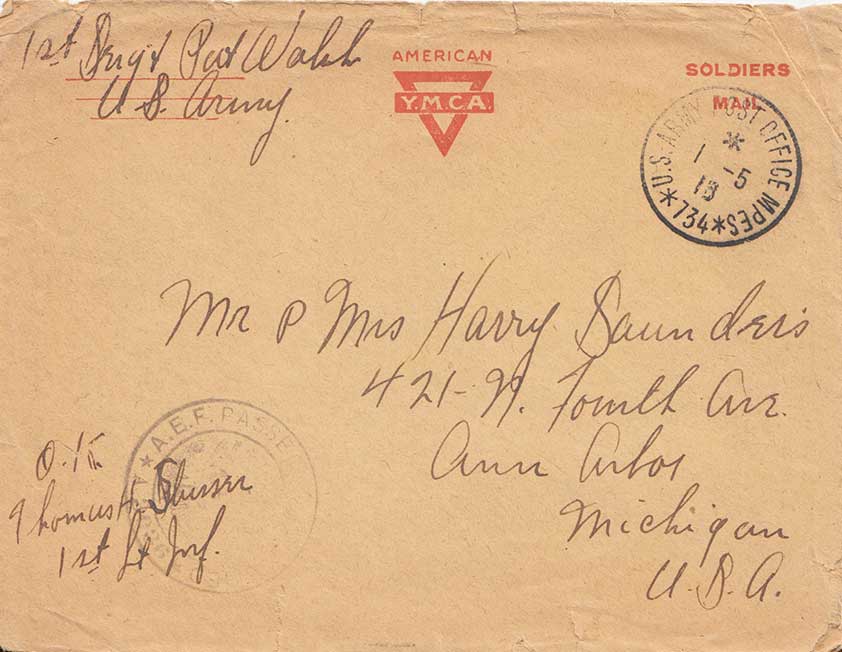 1st Sergt Pat Walsh
U.S. Army.
AMERICAN
Y.M.C.A.
SOLDIERS
MAIL
U.S. ARMY POST OFFICE MPES
*
1 -5
18
*734*
Mr & Mrs Harry Saunders
421-N. Fourth Ave.
Ann Arbor
Michigan
U.S.A.
A.E.F. PASSED
O.K.
Thomas H. Slusser
1st Lt Inf.